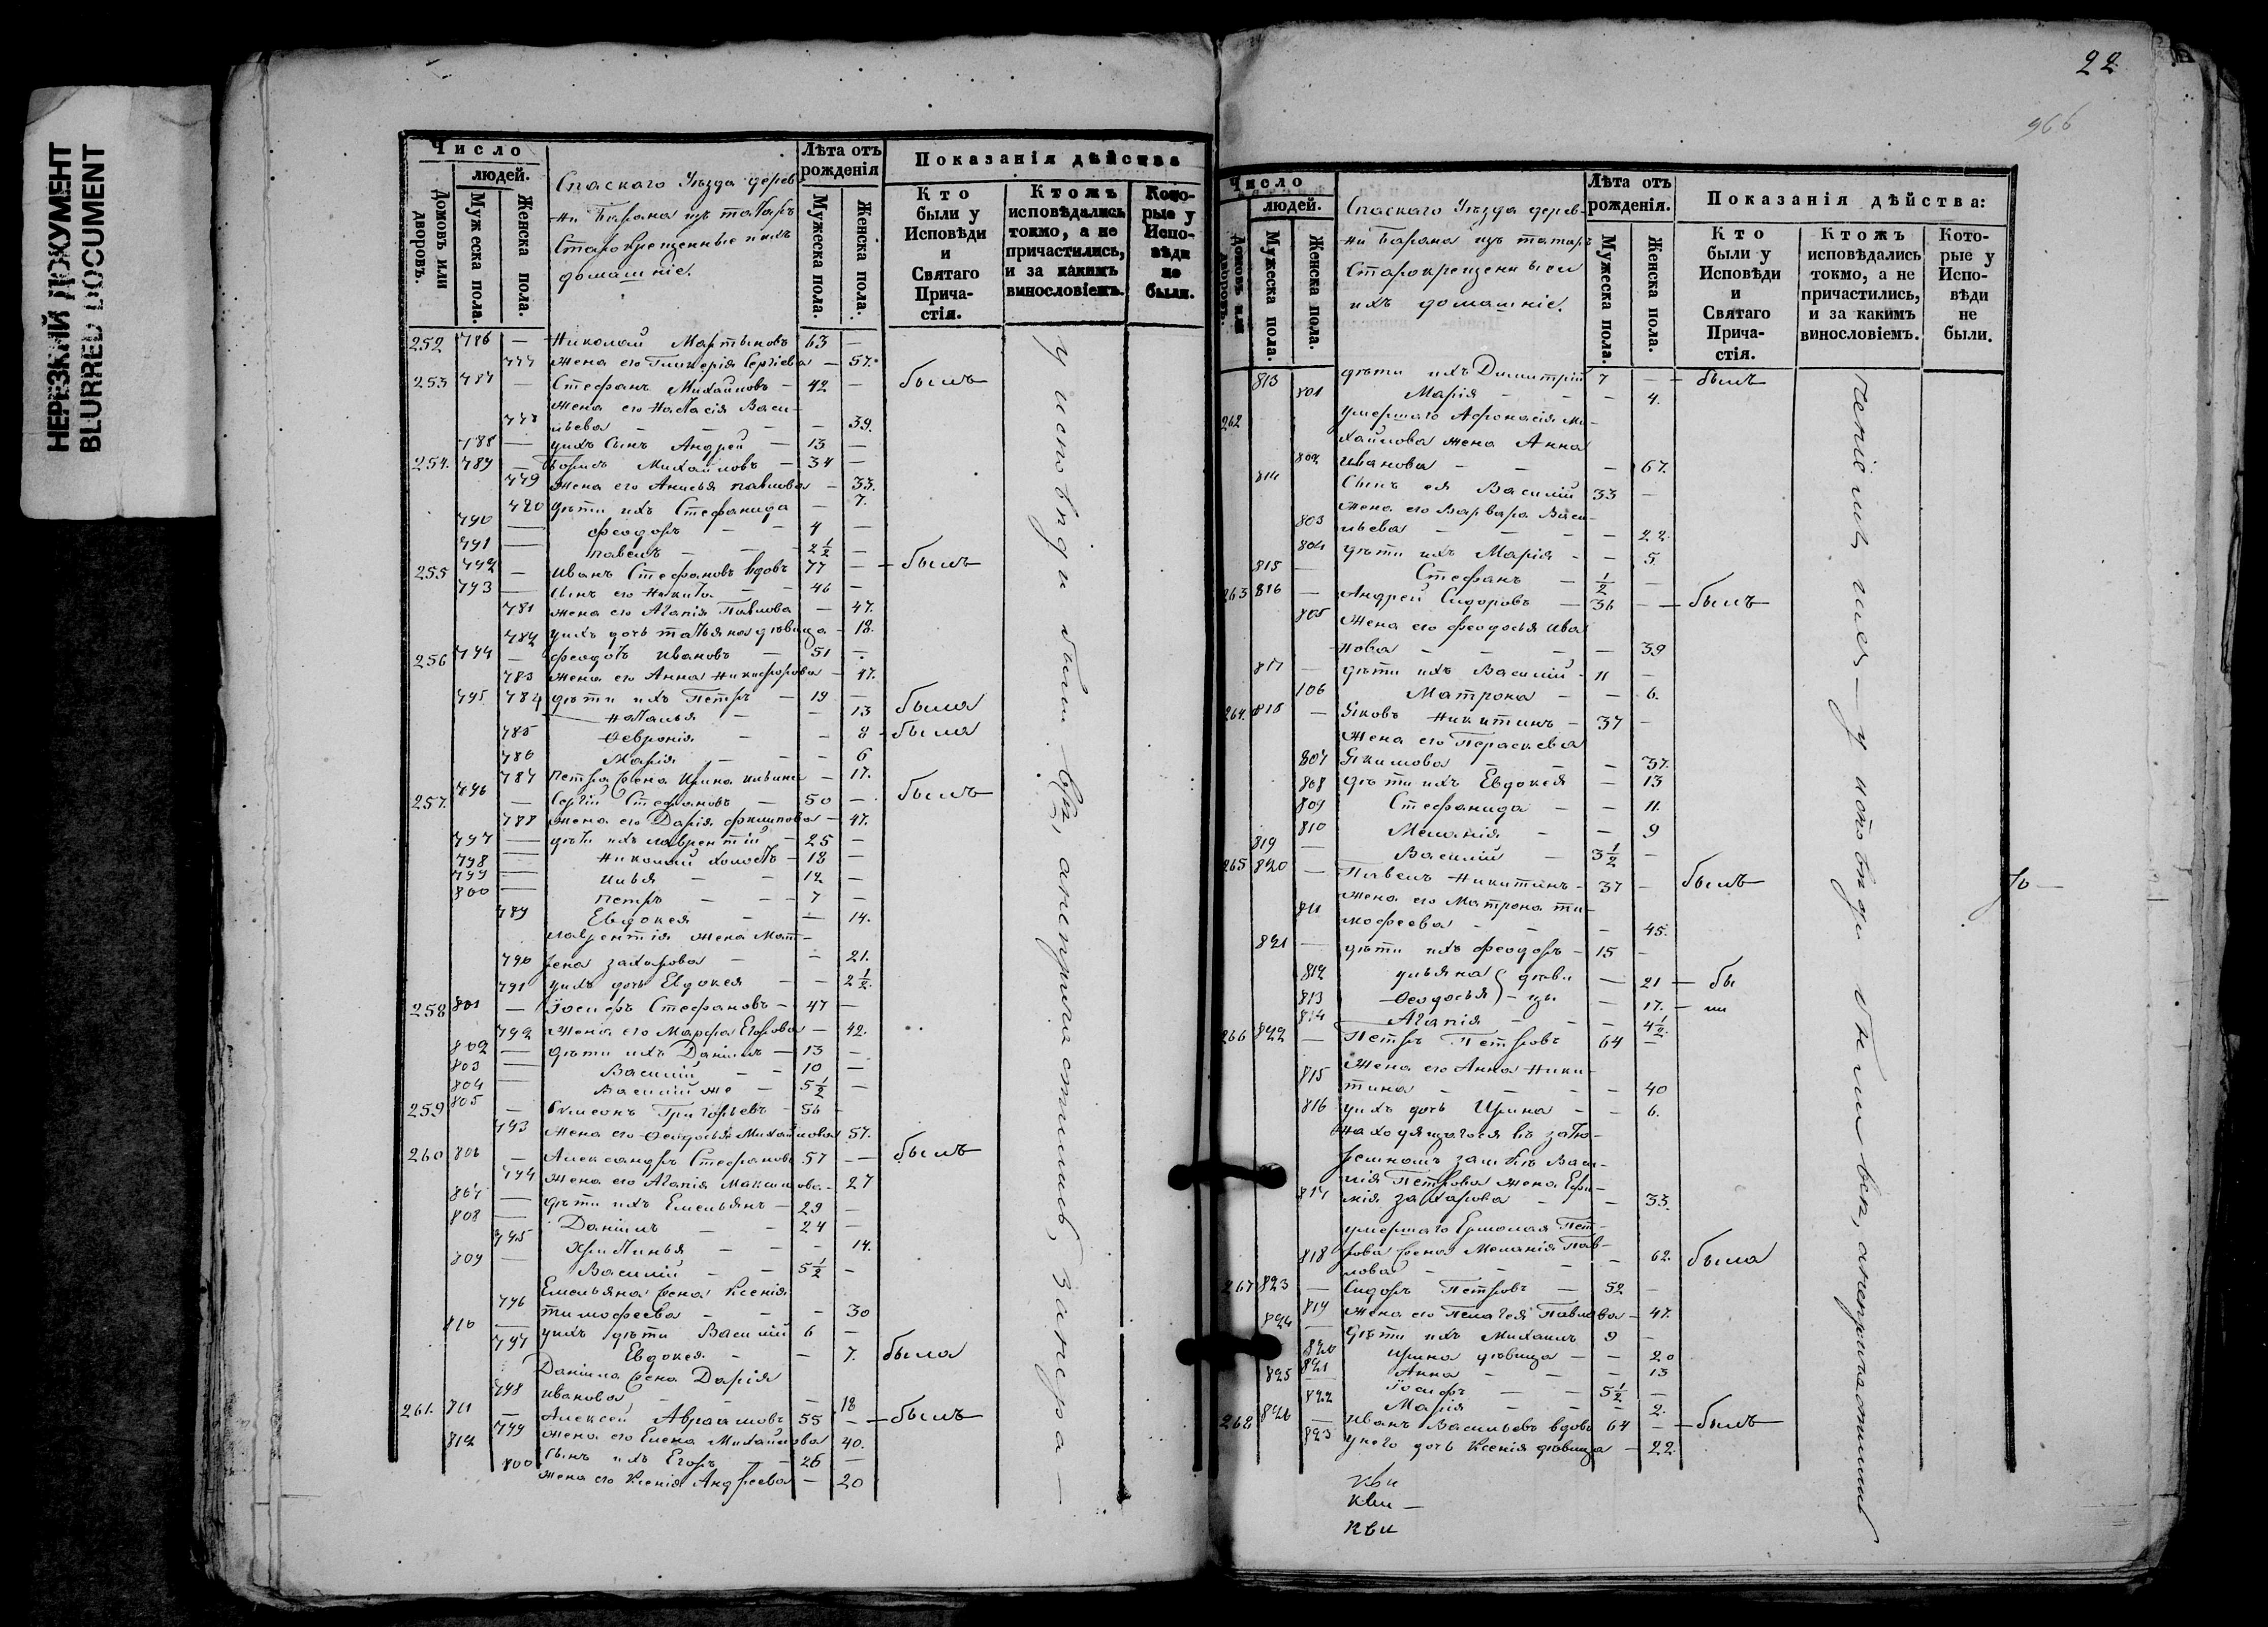 НЕРЕЗКИЙ ДОКУМЕНТ
BLURRED DOCUMENT
Число
людей.
Домовъ или дворовъ.
Мужеска пола.
Женска пола.
Спаскаго Уѣзда дерев
ни Барана изъ татаръ
Старокрещенные и ихъ
домашніе.
Лѣта отъ рожденія
Мужеска пола.
Женска пола.
Показанія дѣйства
Кто были у Исповѣди и Святаго Прича-стія.
Ктожъ исповѣдались токмо, а не причастились, и за какимъ винословіемъ.
Кото-рые у Испо-вѣди не были.
252 786 — Николай Мартыновъ 63 —
777 жена его Гликерія Сергіева — 57.
253 787 — Стефанъ Михайловъ — 42 — былъ
жена его Наталія Васи-
778 льева — — 39.
788 — у ихъ Сынъ Андрей — 13 —
254. 789 — Борисъ Михайловъ — 34 —
779 жена его Анисья павлова — 33.
780 дѣти ихъ Стефанида — 7.
790 — феодоръ — 4 —
791 — павелъ — 2½ —
255 792 — Иванъ Стефановъ вдовъ 77 — былъ
793 — сынъ его Никита — 46 —
781 жена его Агапія Павлова — 47.
782 у ихъ дочь татьяна дѣвица — 18.
256 794 — феодотъ Ивановъ — 51 —
783 жена его Анна Никифорова — 47.
795 784 дѣти ихъ Петръ — 19 —
Наталья — 13 была
785 Ѳевронія — 8 была
786 Марія — 6
787 Петра жена Ирина ильина — 17.
257. 796 — Сергій Стефановъ — 50 — былъ
788 жена его Дарія филипова — 47.
797 — дѣти ихъ лаврентій — 25 —
798 — Николай холостъ — 18 —
799 — Илья — 12 —
800 — петръ — 7 —
789 Евдокея — 14.
лаврентія жена Мат-
790 рена захарова — 21.
791 у ихъ дочь Евдокея — 2½.
258 801 — Іосифъ Стефановъ — 47 —
792 жена его Марфа Егорова — 42.
802 — дѣти ихъ Даніилъ — 13 —
803 — Василій — 10 —
804 — Василій же — 5½ —
259 805 — Симеонъ Григорьевъ — 56 —
793 жена его Ѳеодосья Михайлова 57.
260 806 — Александръ Стефановъ 57 — былъ
794 жена его Агапія Максимова — 27
807 — дѣти ихъ Емельянъ — 29 —
808 — Даніилъ — 24 —
795 Христинья — 14.
809 — Василій — 5½ —
Емельяна жена Ксенія
796 тимофеева — 30
810 — у ихъ дѣти Василій 6 —
797 Евдокея — 7. была
Даніила жена Дарія
798 иванова — 18
261. 811 — Алексей Авраамовъ 55 — былъ
799 жена его Елена Михайлова 40.
812 — сынъ ихъ Егоръ — 26 —
800 жена его Ксенія Андреева — 20
у исповѣди были всѣ, а непричастились, за нера—
22
966
Число
людей.
Домовъ или дворовъ.
Мужеска пола.
Женска пола.
Спаскаго Уѣзда дерев-
ни Барана изъ татаръ
Старокрещенные и
ихъ домашніе.
Лѣта отъ рожденія.
Мужеска пола.
Женска пола.
Показанія дѣйства:
Кто были у Исповѣди и Святаго Прича-стія.
Ктожъ исповѣдались токмо, а не причастились, и за какимъ винословіемъ.
Кото-рые у Испо-вѣди не были.
813 дѣти ихъ Димитрій 7 — былъ
801 Марія — 4.
262 умершаго Афонасія Ми-
хайлова жена Анна
802 Иванова — 67.
814 Сынъ ея Василій 33 —
жена его Варвара Васи-
803 льева — 22
804 дѣти ихъ Марія — 5
815 — Стефанъ — ½ —
263 816 — Андрей Сидоровъ — 36 — былъ
805 жена его феодосья ива
нова — 39
817 — дѣти ихъ Василій — 11 —
806 Матрона — 6.
264. 818 — Яковъ Никитинъ — 37 —
жена его Пераскева
807 Якимова — 37.
808 дѣти ихъ Евдокея — 13
809 Стефанида — 11.
810 Меланія — 9
819 — Василій — 3½ —
265 820 — Павелъ Никитинъ — 37 — былъ
жена его Матрона ти-
811 мофеева — 45.
821 — дѣти ихъ феодоръ — 15 —
812 ульяна } дѣви — 21 — бы
813 Ѳеодосья } — цы — 17. — ли
814 Агапія — 4½.
266 822 — Петръ Петровъ 64 —
жена его Анна Ники-
815 тина — 40
816 у ихъ дочь Ирина — 6.
находящагося въ
Васи-
лія Петрова жена Ефи-
817 мія захарова — 33.
умершаго Ермолая Пет-
818 рова жена Меланія Пав-
лова — 62. была
267 823 — Сидоръ Петровъ — 52 —
819 жена его Пелагея Павлова — 47.
824 — дѣти ихъ Михаилъ 9 —
820 Ирина дѣвица — 20
821 Анна — 13
825 — Іосифъ — 5½ —
822 Марія — 2.
268 826 — Иванъ Васильевъ вдовъ 64 — былъ
823 у него дочь Ксенія дѣвица — 22.
деніемъ у исповѣди были всѣ, а непричастились